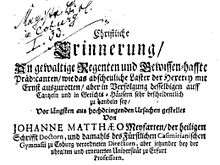 Christliche
Erinnerung/
An gewaltige Regenten und Gewissenhaffte
Prädicanten/ wie das abscheuliche Laster der Hexerey mit
Ernst auszurotten/ aber in Verfolgung desselbigen auff
Cantzeln und in Gerichts-Häusern sehr bescheidentlich
zu handeln sey/
Vor längsten aus hochdringenden Ursachen gestellet
Von
JOHANNE MATTHÆO Meyfarten/ der heiligen
Schrifft Doctorn, und damahls des Fürstlichen CASIMIRIANI
Gymnasii zu Coburg verordneten Directorn, aber jetzunder bey der
uhralten und erneuerten Universität zu Erfurt
Professorn.